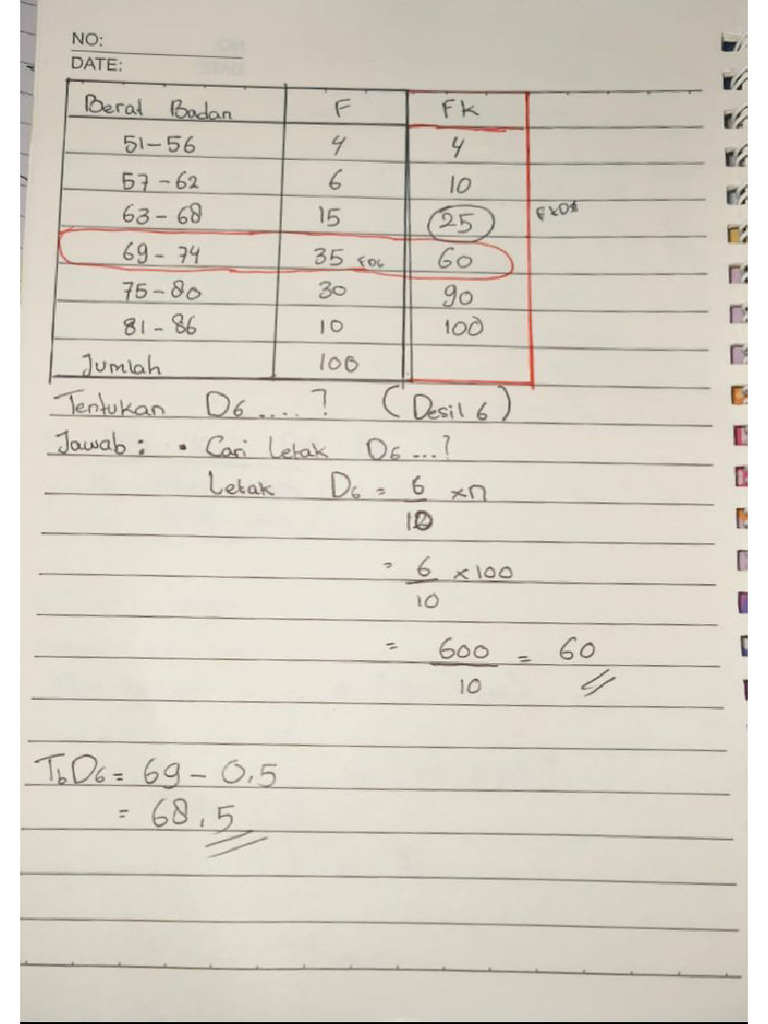 NO:
DATE:
Berat Badan F FK
51-56 4 4
57-62 6 10
63-68 15 25
69-74 35 FD6 60
75-80 30 90
81-86 10 100
Jumlah 100
Tentukan D6 ....? (Desil 6)
Jawab: • Cari Letak D6 ...?
Letak D6 = 6/10 x n
= 6/10 x 100
= 600/10 = 60
TbD6 = 69 - 0,5
= 68,5